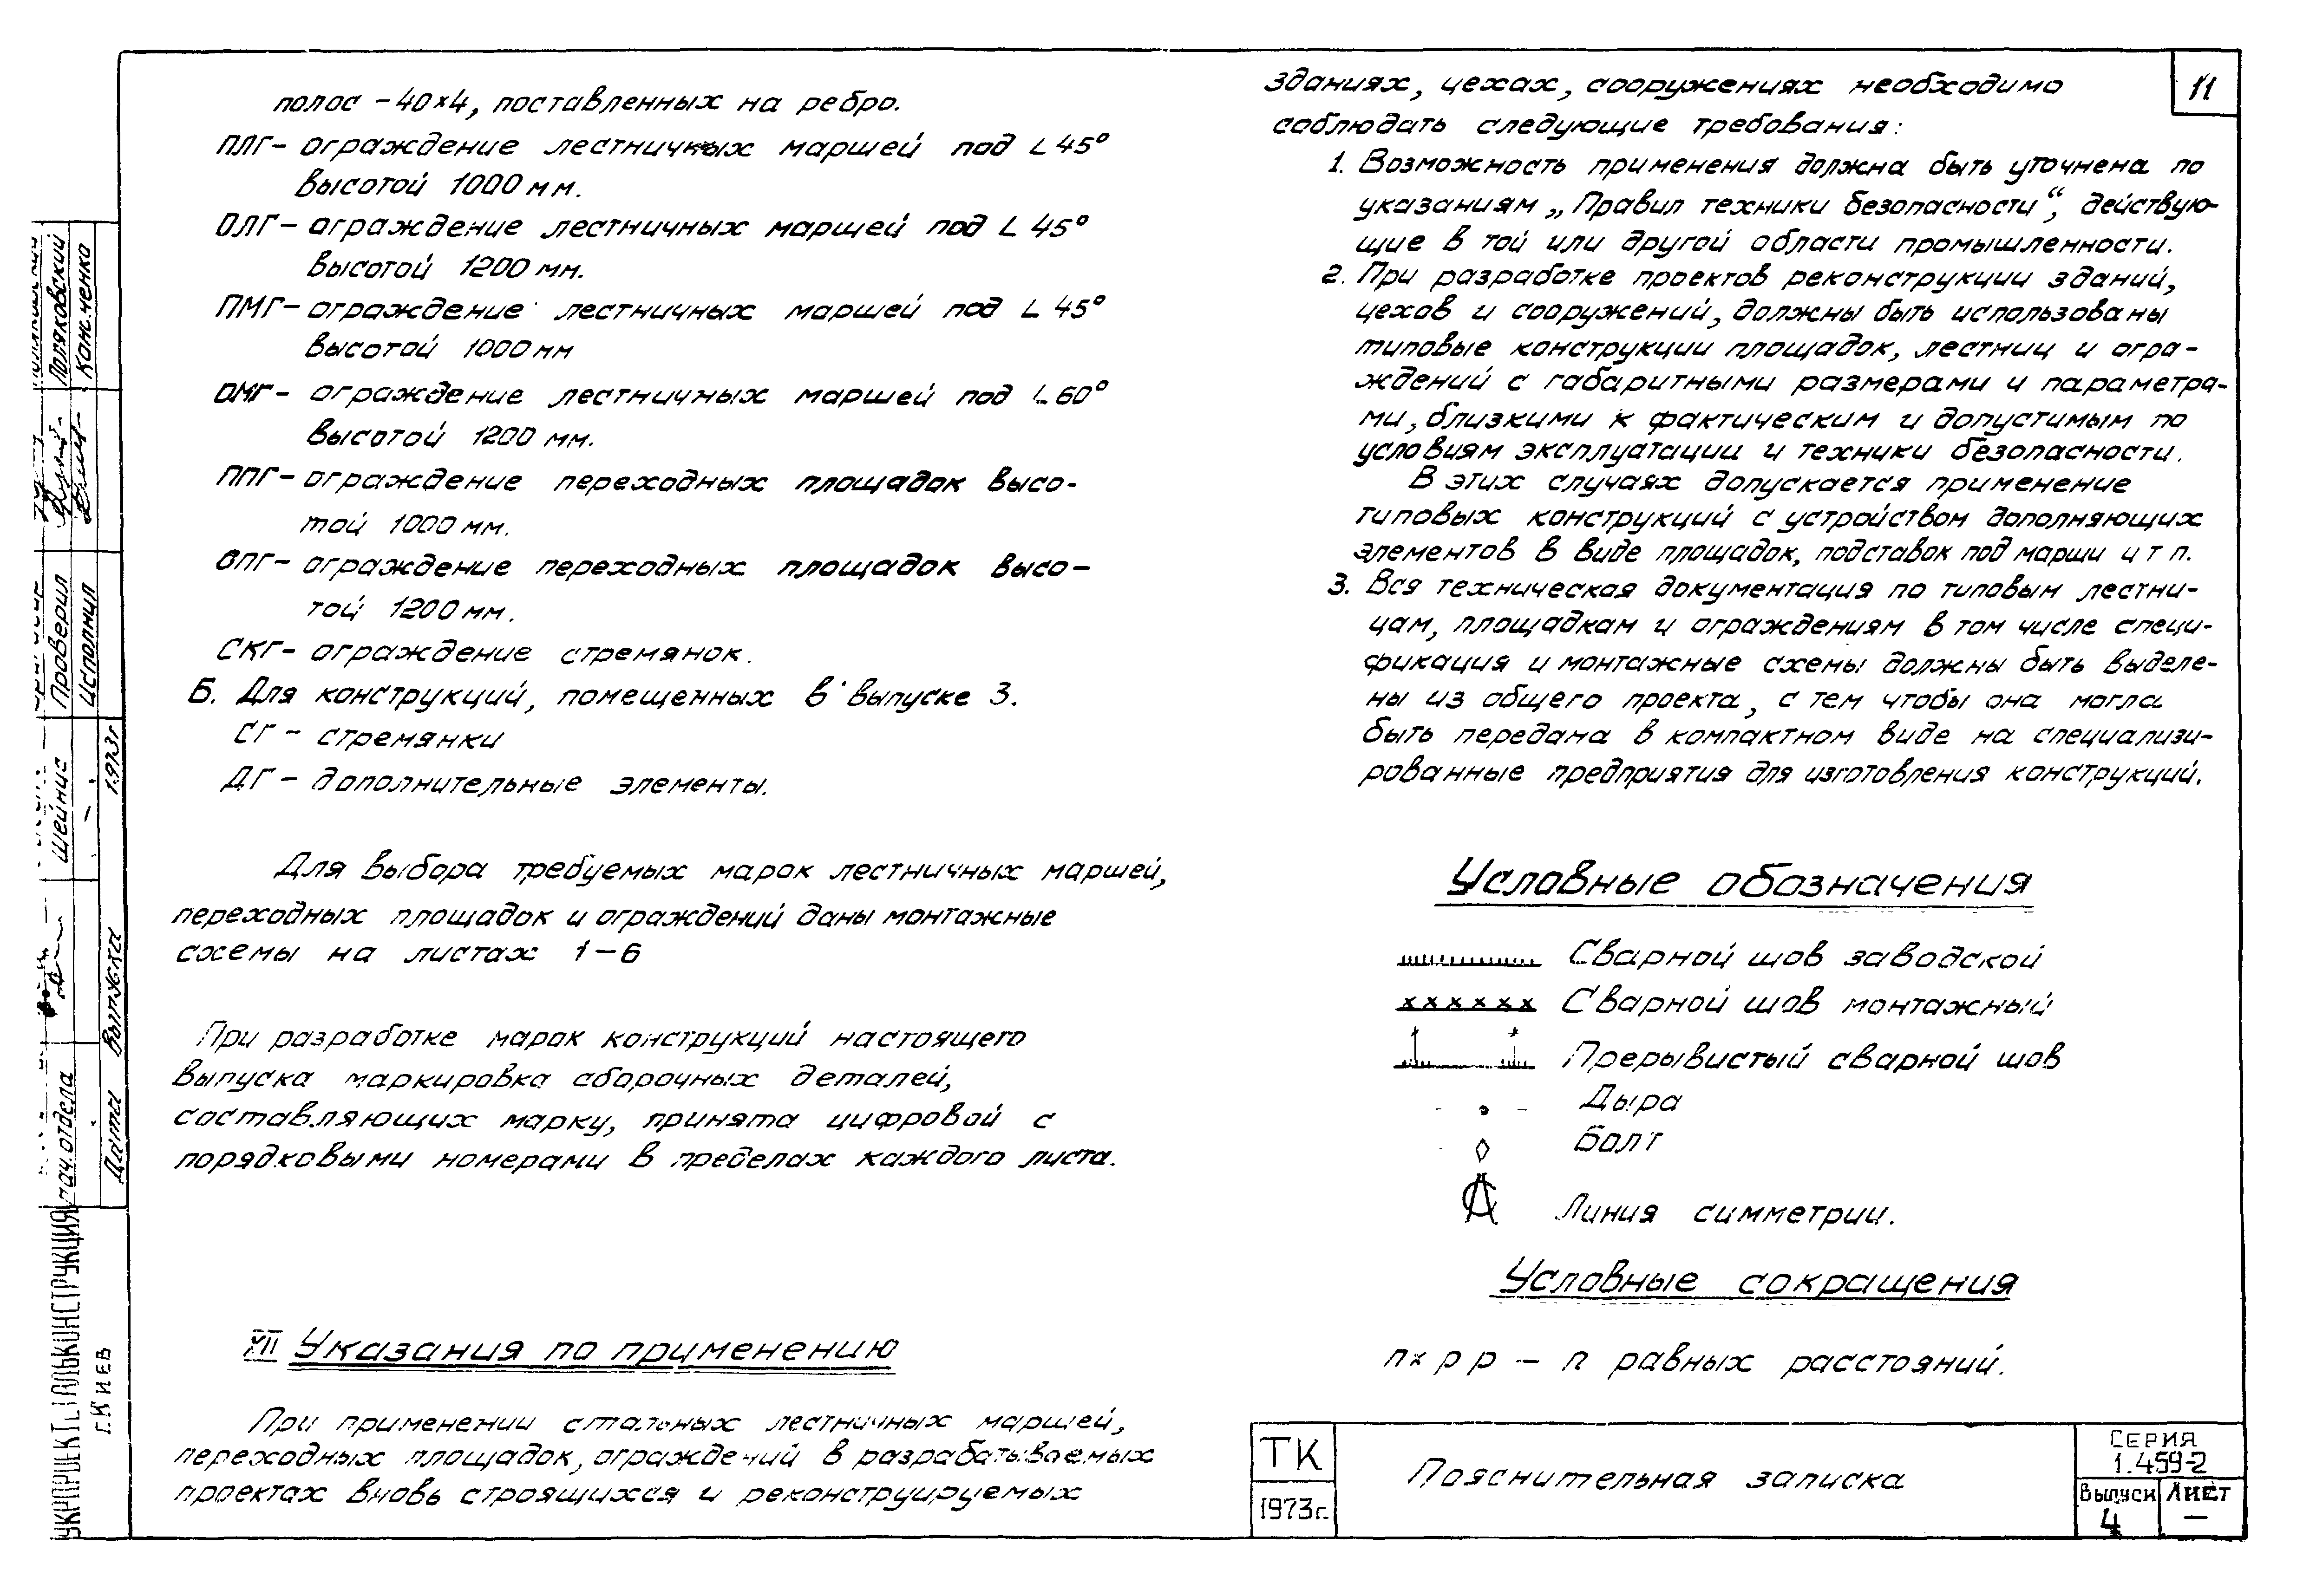 полос –40×4, поставленных на ребро.
ПЛГ– ограждение лестничных маршей под ∟45°
высотой 1000 мм.
ОЛГ– ограждение лестничных маршей под ∟45°
высотой 1200 мм.
ПМГ– ограждение лестничных маршей под ∟45°
высотой 1000 мм
ОМГ– ограждение лестничных маршей под ∟60°
высотой 1200 мм.
ППГ– ограждение переходных площадок высо-
той 1000 мм.
ОПГ– ограждение переходных площадок высо-
той 1200 мм.
СКГ– ограждение стремянок.
Б. Для конструкций, помещенных в выпуске 3.
СГ – стремянки
ДГ – дополнительные элементы.
Для выбора требуемых марок лестничных маршей,
переходных площадок и ограждений даны монтажные
схемы на листах 1–6
При разработке марок конструкций настоящего
выпуска маркировка сборочных деталей,
составляющих марку, принята цифровой с
порядковыми номерами в пределах каждого листа.
XII Указания по применению
При применении стальных лестничных маршей,
переходных площадок, ограждений в разрабатываемых
проектах вновь строящихся и реконструируемых
зданиях, цехах, сооружениях необходимо
соблюдать следующие требования:
1. Возможность применения должна быть уточнена по
указаниям „Правил техники безопасности“, действую-
щие в той или другой области промышленности.
2. При разработке проектов реконструкции зданий,
цехов и сооружений, должны быть использованы
типовые конструкции площадок, лестниц и огра-
ждений с габаритными размерами и параметра-
ми, близкими к фактическим и допустимым по
условиям эксплуатации и техники безопасности.
В этих случаях допускается применение
типовых конструкций с устройством дополняющих
элементов в виде площадок, подставок под марши и т п.
3. Вся техническая документация по типовым лестни-
цам, площадкам и ограждениям в том числе специ-
фикация и монтажные схемы должны быть выделе-
ны из общего проекта, с тем чтобы она могла
быть передана в компактном виде на специализи-
рованные предприятия для изготовления конструкций.
Условные обозначения
Сварной шов заводской
Сварной шов монтажный
Прерывистый сварной шов
Дыра
Болт
Линия симметрии.
Условные сокращения
п× р р – п равных расстояний.
11
ТК
1973г.
Пояснительная записка
Серия
1.459-2
Выпуск
4
Лист
–
Поляковский
Конк.ченко
Проверил
Исполнил
Шейнис
1973г
Нач.отдела
Дата выпуска
УКРПРОЕКТСТАЛЬКОНСТРУКЦИЯ
г.Киев